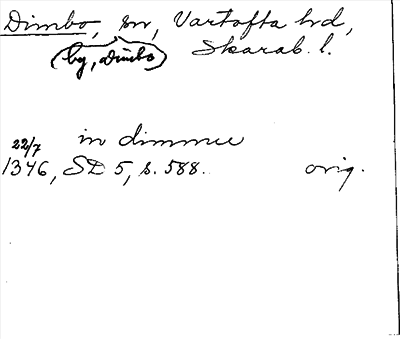 Dimbo, sn, Vartofta hd,
(by, Dimbo) Skarab. l.
22/7 in dimmee
1346, SD 5, s. 588. orig.